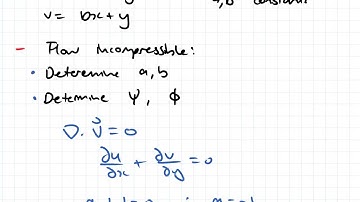 a,b constants
v = bx + y
- Flow incompressible:
• Deteremine a,b
• Determine Ψ, Φ
∇. v⃗ = 0
∂u/∂x + ∂v/∂y = 0